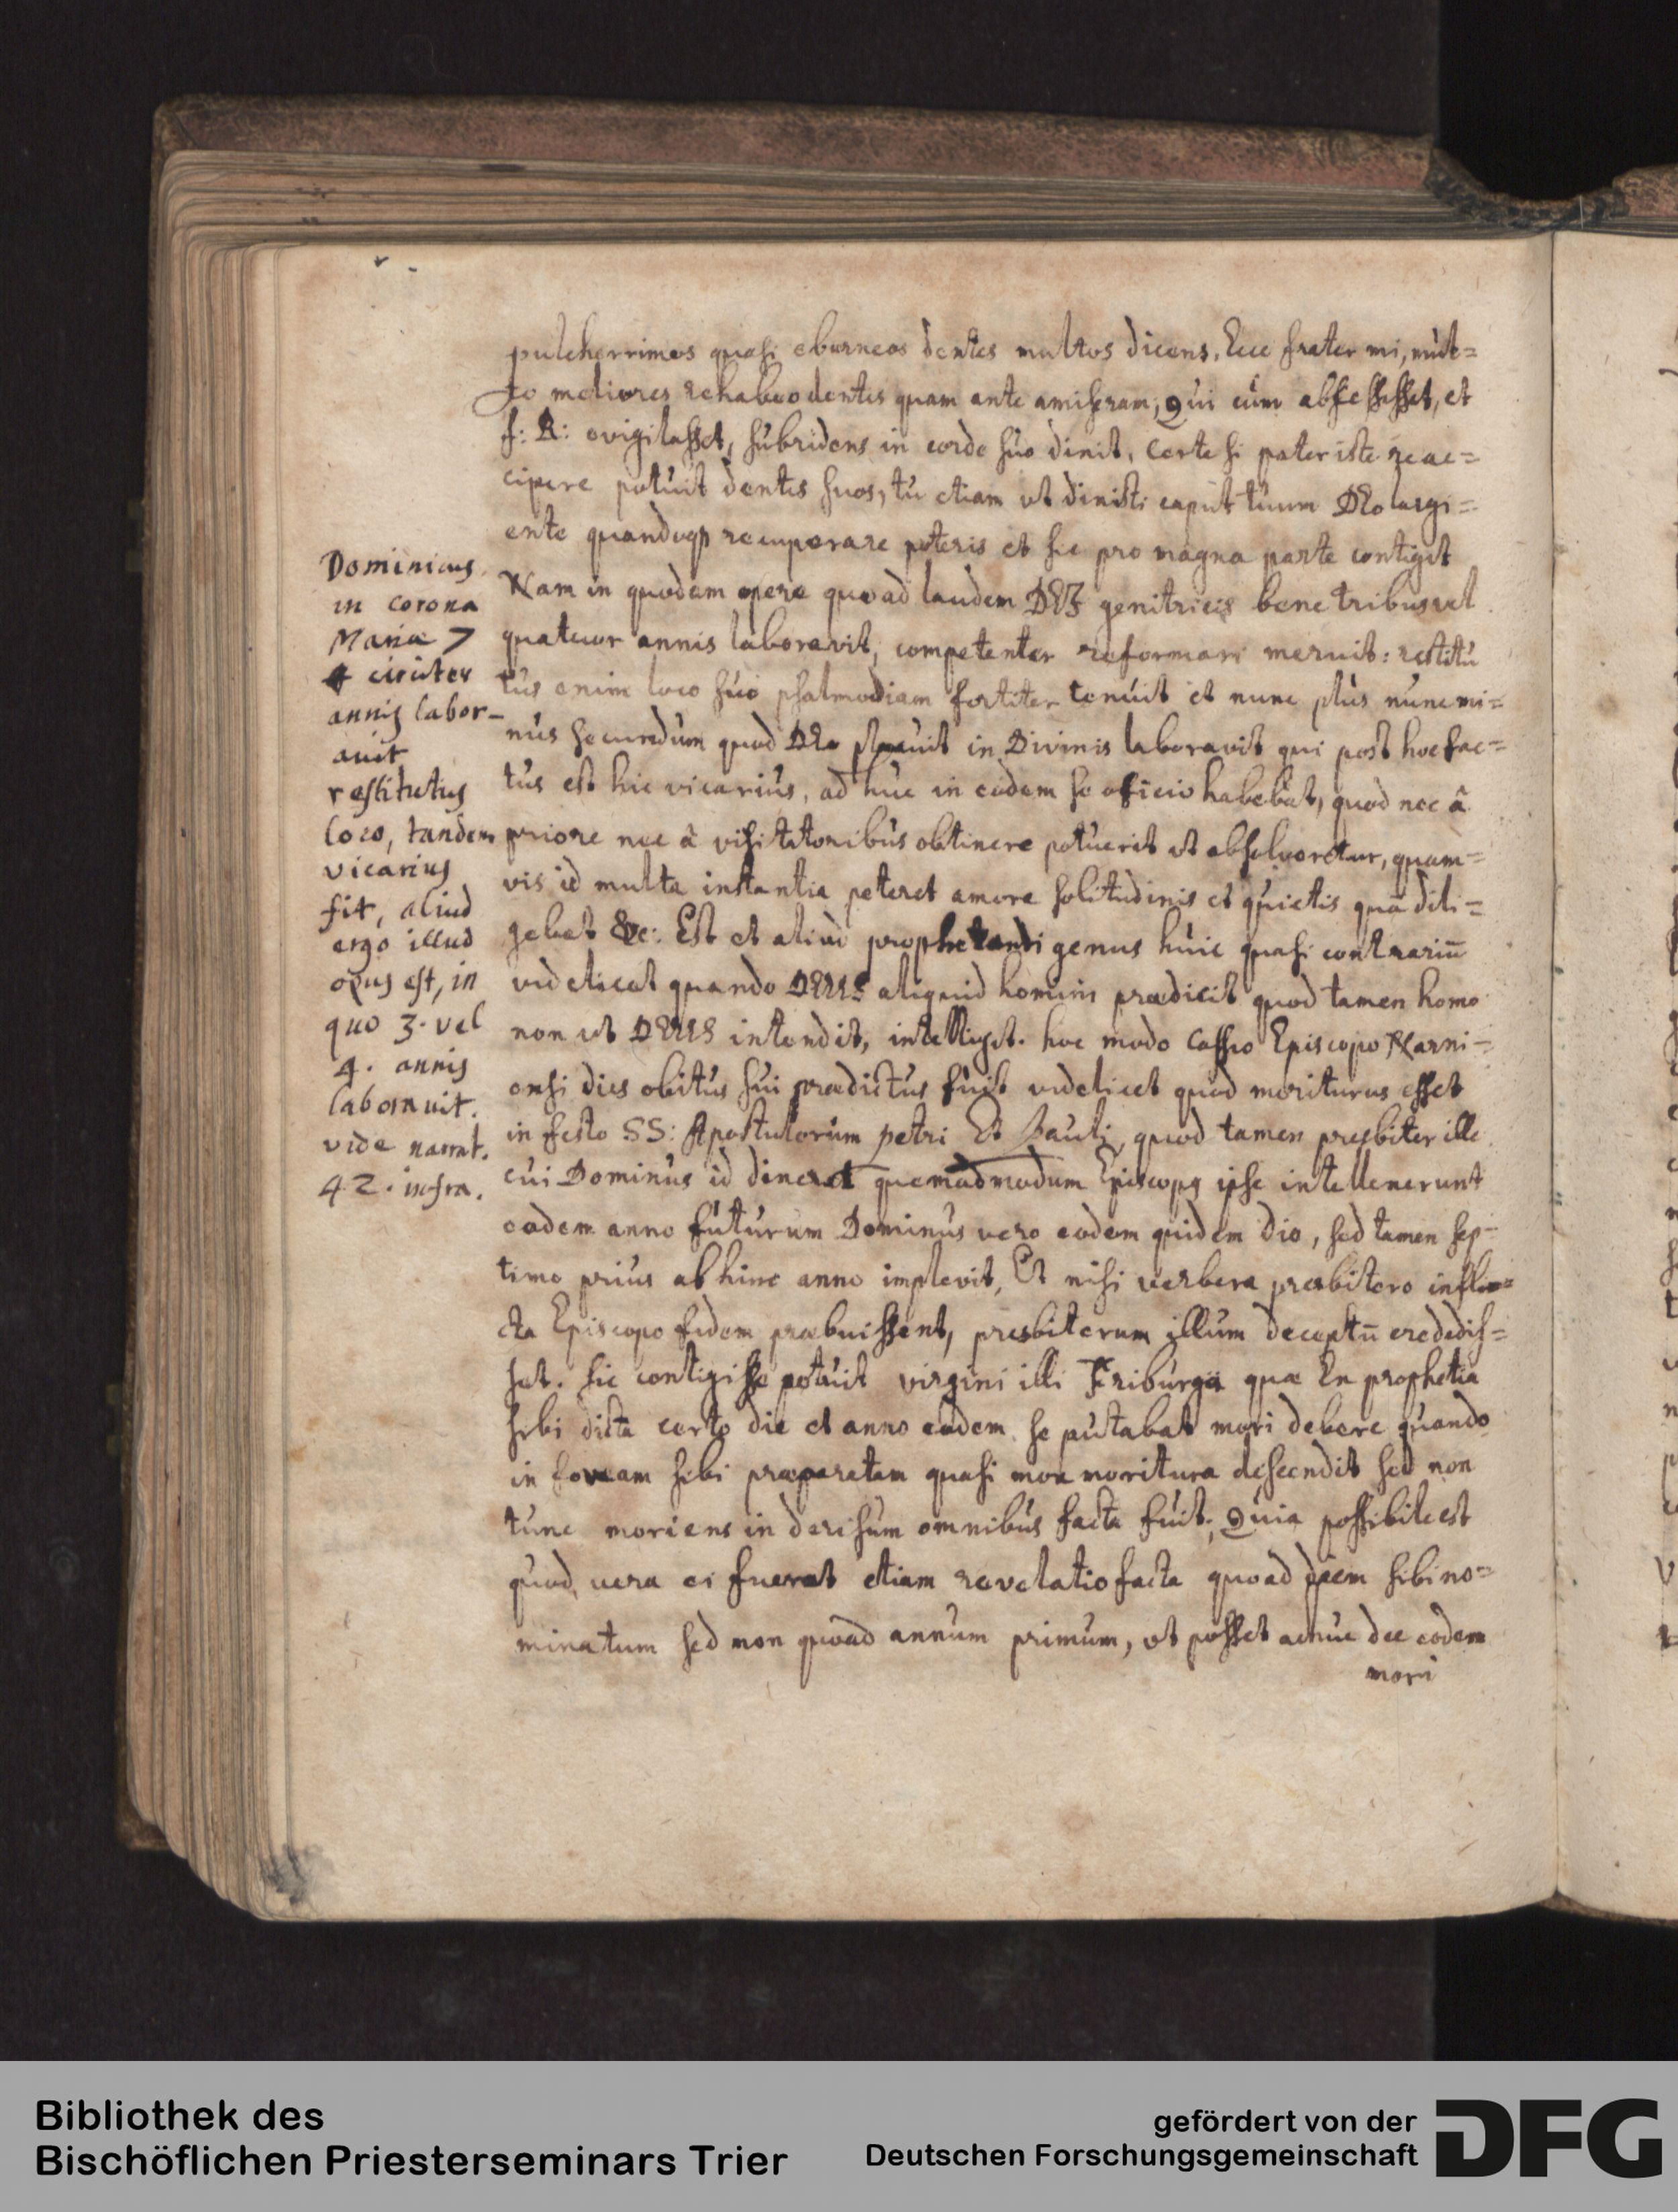 pulcherrimos quasi eburneos dentes multos dicens, Ecce frater mi, mul=
to meliores rehabeo dentes quam ante amiseram; Qui cum abscessisset, et
f: R: evigilasset, subridens in corde suo dixit, certe si pater iste reac=
cipere potuit dentes suos, tu etiam ut dixisti caput tuum DEo largi=
ente quandoqȝ recuperare poteris et sic pro magna parte contigit
Nam in quodam opere quo ad laudem DEI genitricis bene tribus vel
quatuor annis laboravit, competenter reformari meruit: restitu
tus enim loco suo psalmodiam fortiter tenuit et nunc plus nunc mi=
nus secundum quod DEo placuit in Divinis laboravit qui post hoc fac=
tus est hic vicarius, ad huc in eodem se officio habebat, quod nec â
priore nec â visitatoribus obtinere potuerit ut absolveretur, quam=
vis id multa instantia peteret amore solitudinis et quietis quã dili=
gebat &c: Est et aliud prophetandi genus huic quasi contrariũ
videlicet quando DEUS aliquid homini prædicit quod tamen homo
non ut DEUS intendit, intelliget. hoc modo Cassio Episcopo Narni=
ensi dies obitus sui prædictus fuit videlicet quod moriturus esset
in festo SS: Apostolorum petri Et Pauli, quod tamen presbiter ille
cui Dominus id dixerat quemadmodum Episcopg ipse intellexerunt
eodem anno futurum Dominus vero eodem quidem die, sed tamen sep=
timo prius abhinc anno implevit, Et nisi verbera præsbitero inflic=
cta Episcopo fidem præbuissent, presbiterum illum deceptũ credidis=
set. sic contigisse potuit virgini illi Friburgii quæ Ex prophetia
sibi dicta certo die et anno eodem se putabat mori debere quando
in foveam sibi præparatam quasi mox moritura descendit sed non
tunc moriens in derisum omnibus facta fuit. Quia possibile est
quod vera ei fuerat etiam revelatio facta quoad diem sibi no=
minatum sed non quoad annum primum, ut posset adhuc die eodem
mori
Dominicus
in corona
Mariæ 7
circiter
annis labor-
auit
restitutus
loco, tandem
vicarius
fit, aliud
ergo illud
opus est, in
quo 3. vel
4. annis
laborauit.
vide narrat.
42. infra.
Bibliothek des
Bischöflichen Priesterseminars Trier
gefördert von der
Deutschen Forschungsgemeinschaft
DFG